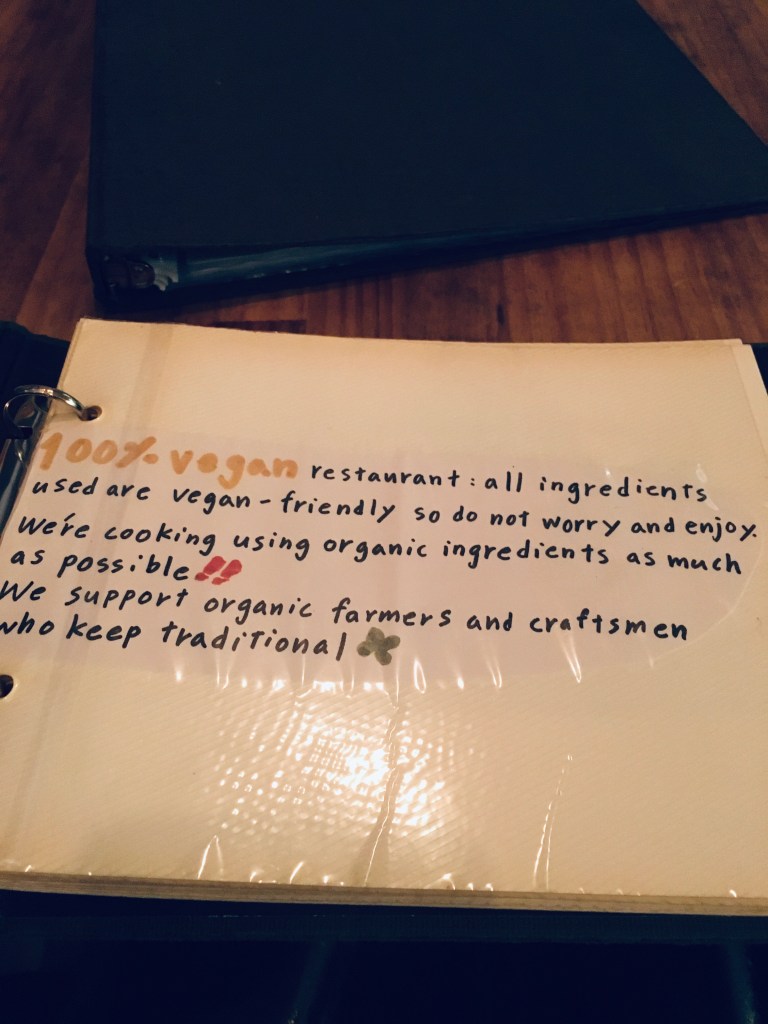 100% vegan restaurant: all ingredients
used are vegan-friendly so do not worry and enjoy.
We're cooking using organic ingredients as much
as possible!!
We support organic farmers and craftsmen
who keep traditional